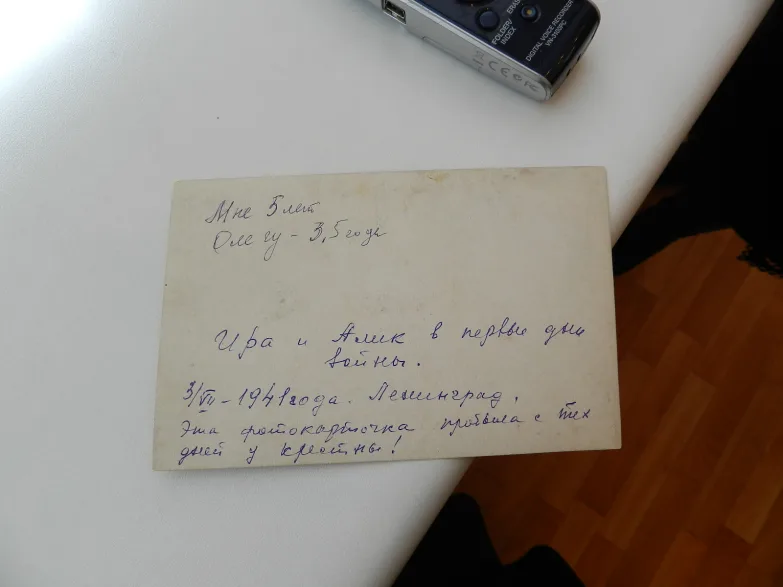 ERASE
FOLDER/
INDEX
DIGITAL VOICE RECORDER
CE
Мне 5 лет
Олегу - 3,5 года
Ира и Алик в первые дни
войны.
3/VII - 1941 года. Ленинград.
Эта фотокарточка пробыла с тех
дней у крестны!